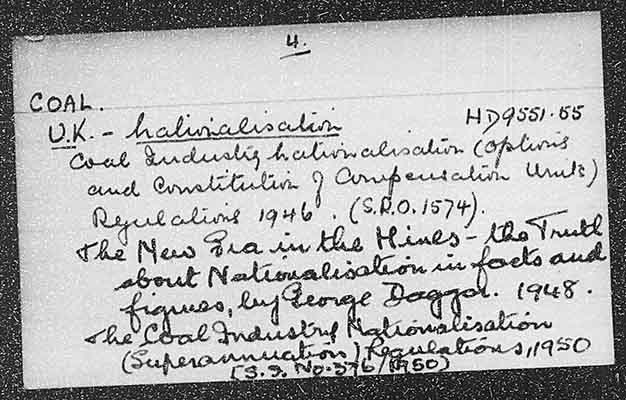 4.
COAL.
U.K. - Nationalisation HD9551.55
Coal Industry Nationalisation (Options
and Constitution of Compensation Units)
Regulations 1946. (S.R.O.1574).
The New Era in the Mines - the Truth
about Nationalisation in facts and
figures, by George Daggar. 1948.
The Coal Industry Nationalisation
(Superannuation) Regulations, 1950
(S.I. No. 376/1950)